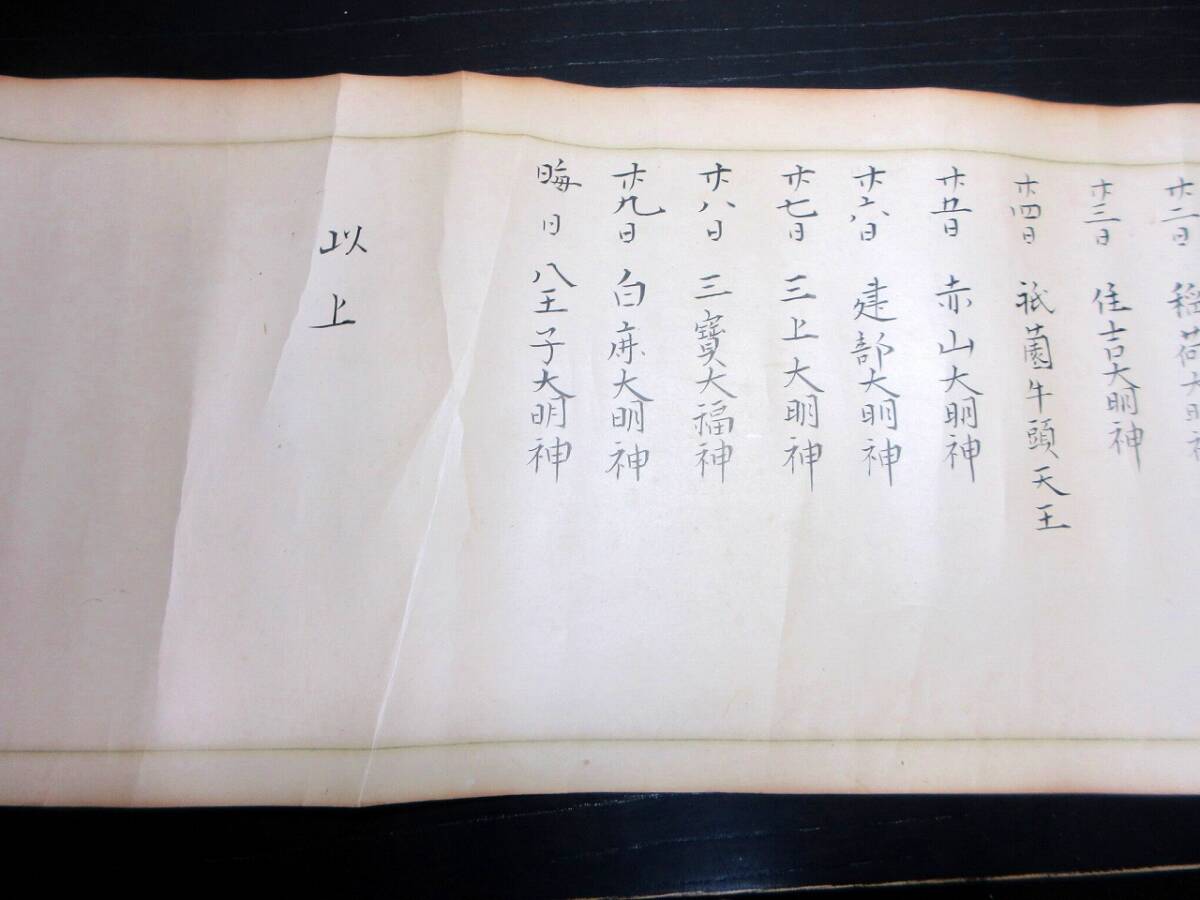 廿二日 稲荷大明神
廿三日 住吉大明神
廿四日 祇薗牛頭天王
廿五日 赤山大明神
廿六日 建部大明神
廿七日 三上大明神
廿八日 三寳大福神
廿九日 白大明神
晦日 八王子大明神
以上